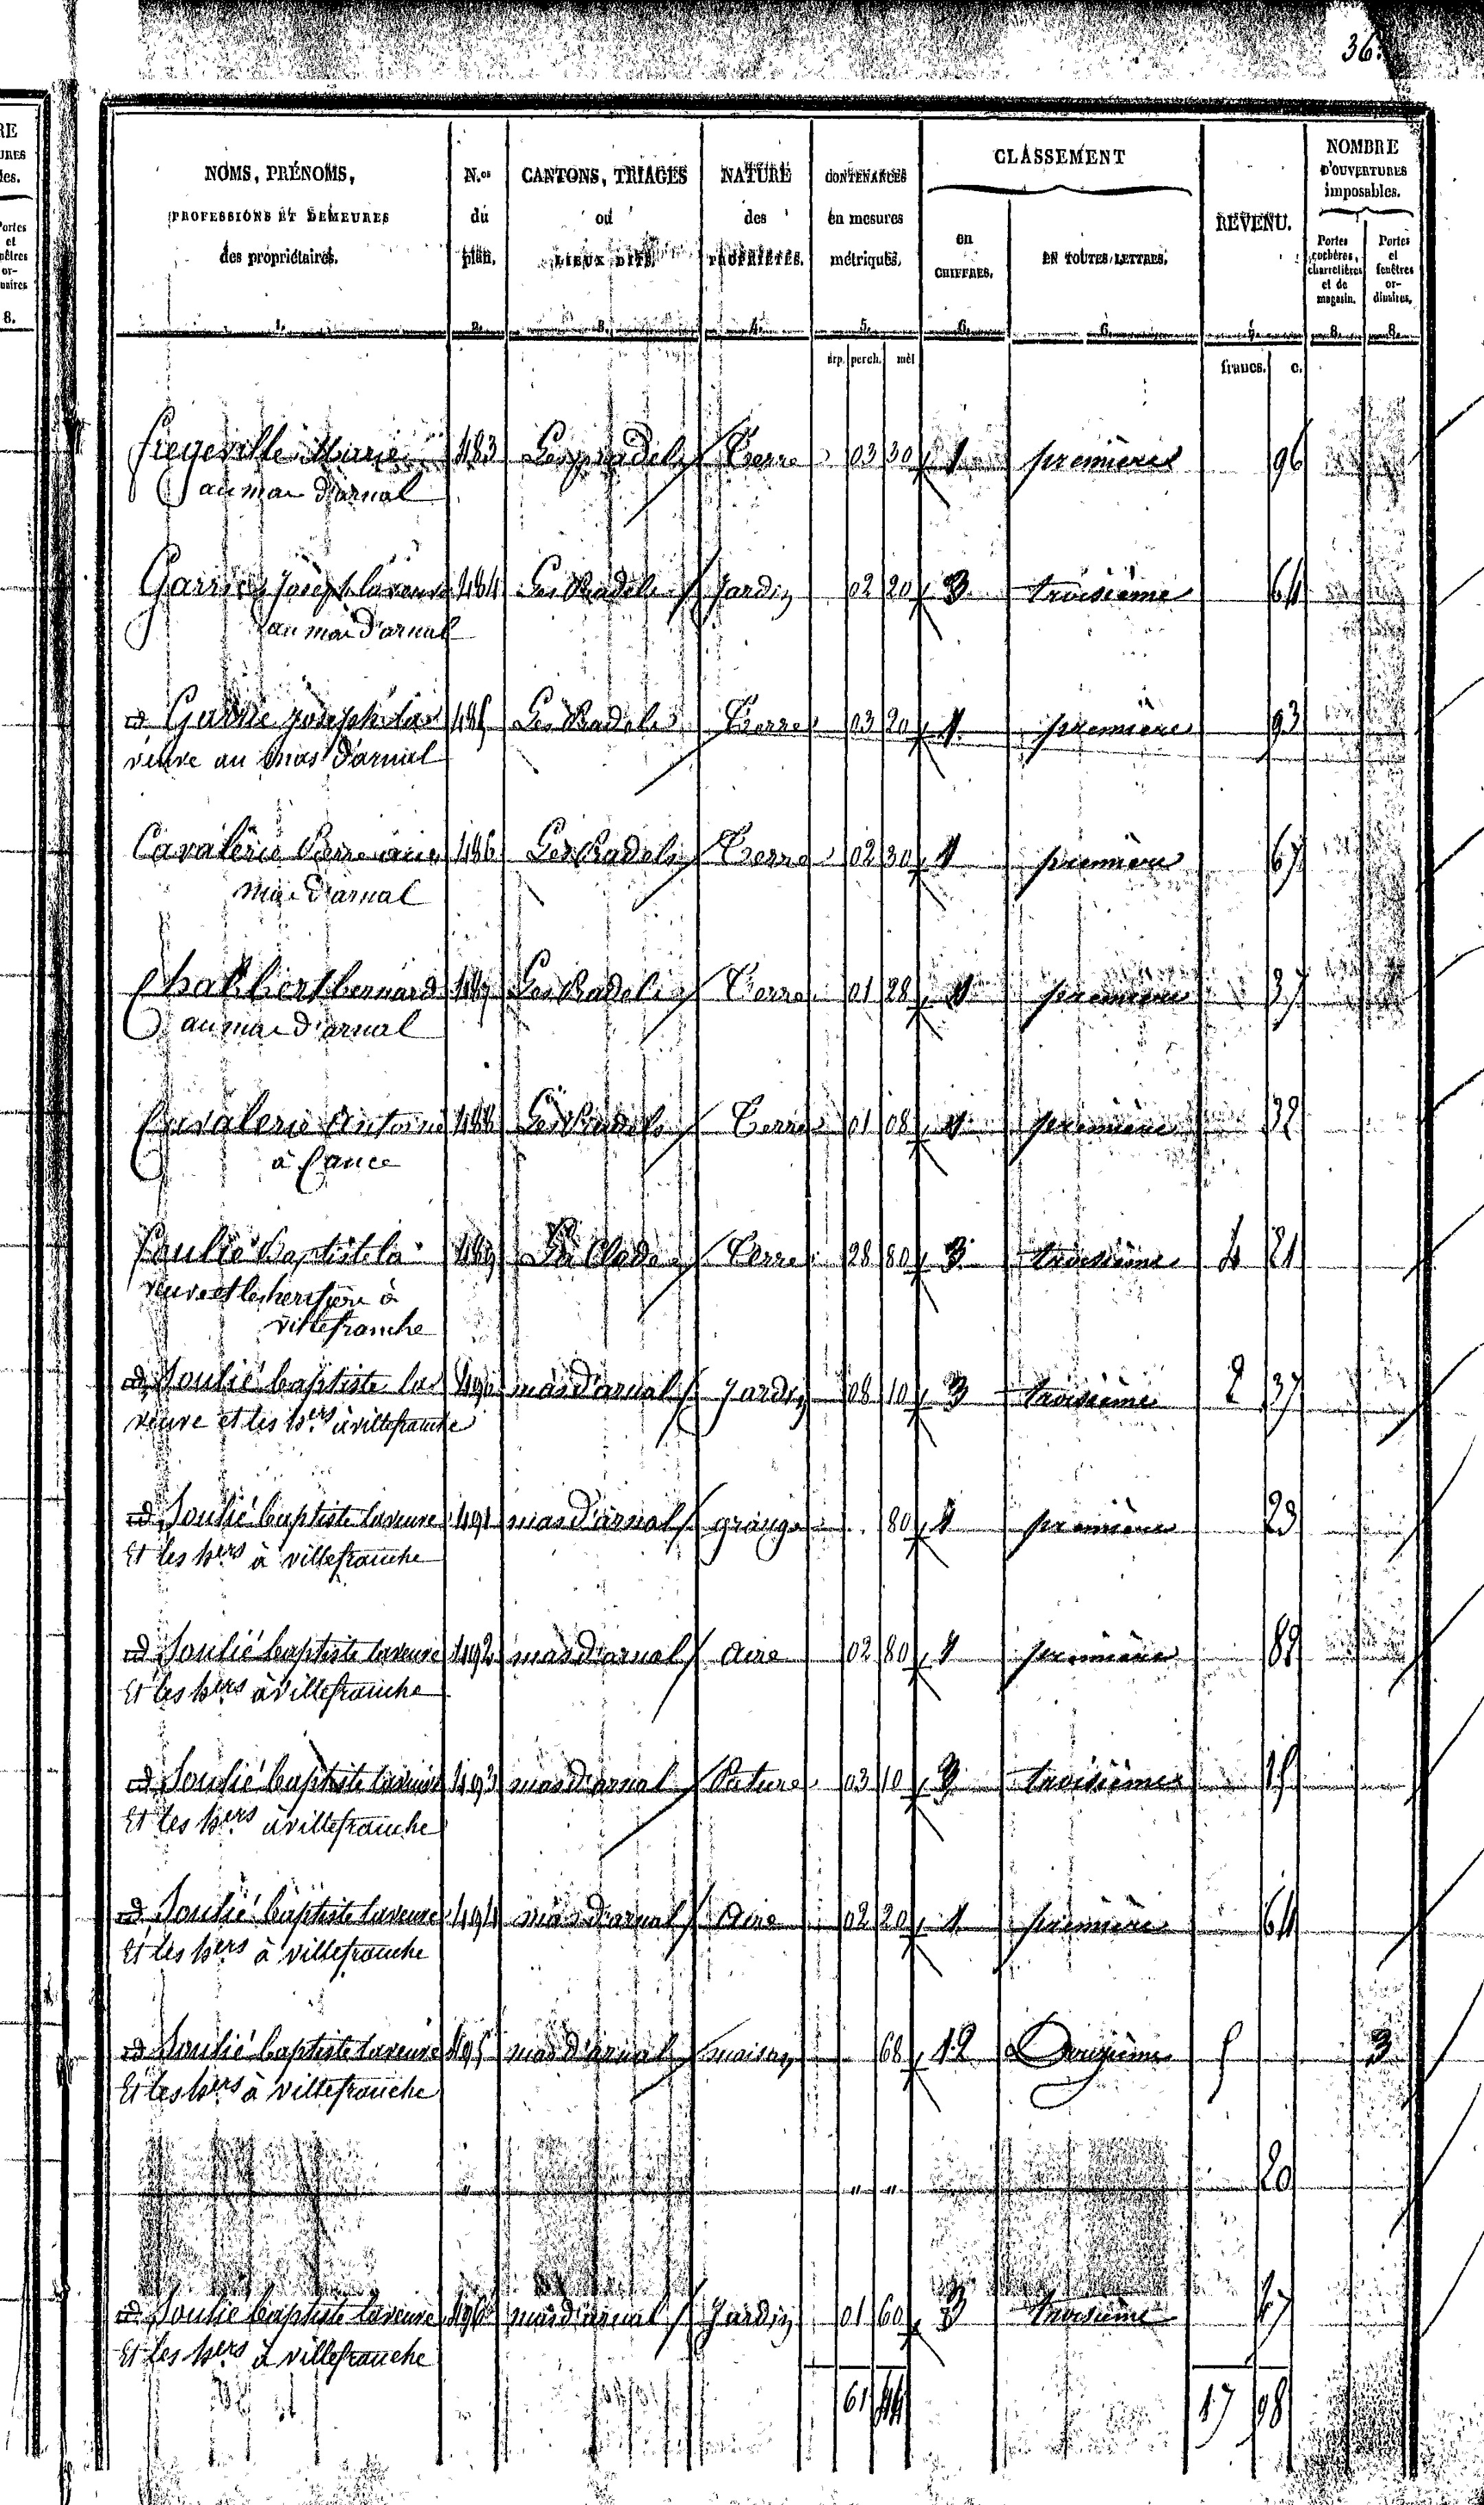 36.
NOMS, PRÉNOMS, PROFESSIONS ET DEMEURES des propriétaires. 1.
N.os du plan. 2.
CANTONS, TRIAGES ou LIEUX DITS. 3.
NATURE des PROPRIÉTÉS. 4.
CONTENANCES en mesures métriques. 5.
CLASSEMENT
en CHIFFRES. 6.
EN TOUTES LETTRES. 6.
REVENU. 7.
NOMBRE D'OUVERTURES imposables.
Portes cochères, charretières et de magasin. 8.
Portes et fenêtres ordinaires. 8.
arp. perch. mèt francs. c.
Fregeville Marie 483 Les pradels Terre 03 30 1 première 96
au mas d'arnal
Garric Joseph la veuve 484 Les Pradels Jardin 02 20 3 troisième 64
au mas d'arnal
id Garric Joseph la 485 Les Pradels Terre 03 20 1 première 93
veuve au mas d'arnal
Cavalerie Pierre au 486 Les Pradels Terre 02 30 1 première 67
mas d'arnal
Chabbert bernard 487 Les Pradels Terre 01 28 1 première 37
au mas d'arnal
Cavalerie Antoine 488 Les Pradels Terre 01 08 1 première 32
à
Soulié Baptiste la 489 La Terre 28 80 3 troisième 4 21
veuve et les heritiers à
villefranche
id Soulié baptiste la 490 mas d'arnal Jardin 08 10 3 troisième 2 37
veuve et les hers à villefranche
id Soulié baptiste la veuve 491 mas d'arnal grange 80 1 première 23
Et les hers à villefranche
id Soulié baptiste la veuve 492 mas d'arnal aire 02 80 1 première 82
Et les hers à villefranche
id Soulié baptiste la veuve 493 mas d'arnal Pature 03 10 3 troisième 15
Et les hers à villefranche
id Soulié baptiste la veuve 494 mas d'arnal Aire 02 20 1 première 64
Et les hers à villefranche
id Soulié baptiste la veuve 495 mas d'arnal maison 68 12 Douzième 5 3
Et les hers à villefranche
" " " 20
id Soulié baptiste la veuve 496 mas d'arnal Jardin 01 60 3 troisième 47
Et les hers à villefranche
61 44 17 98